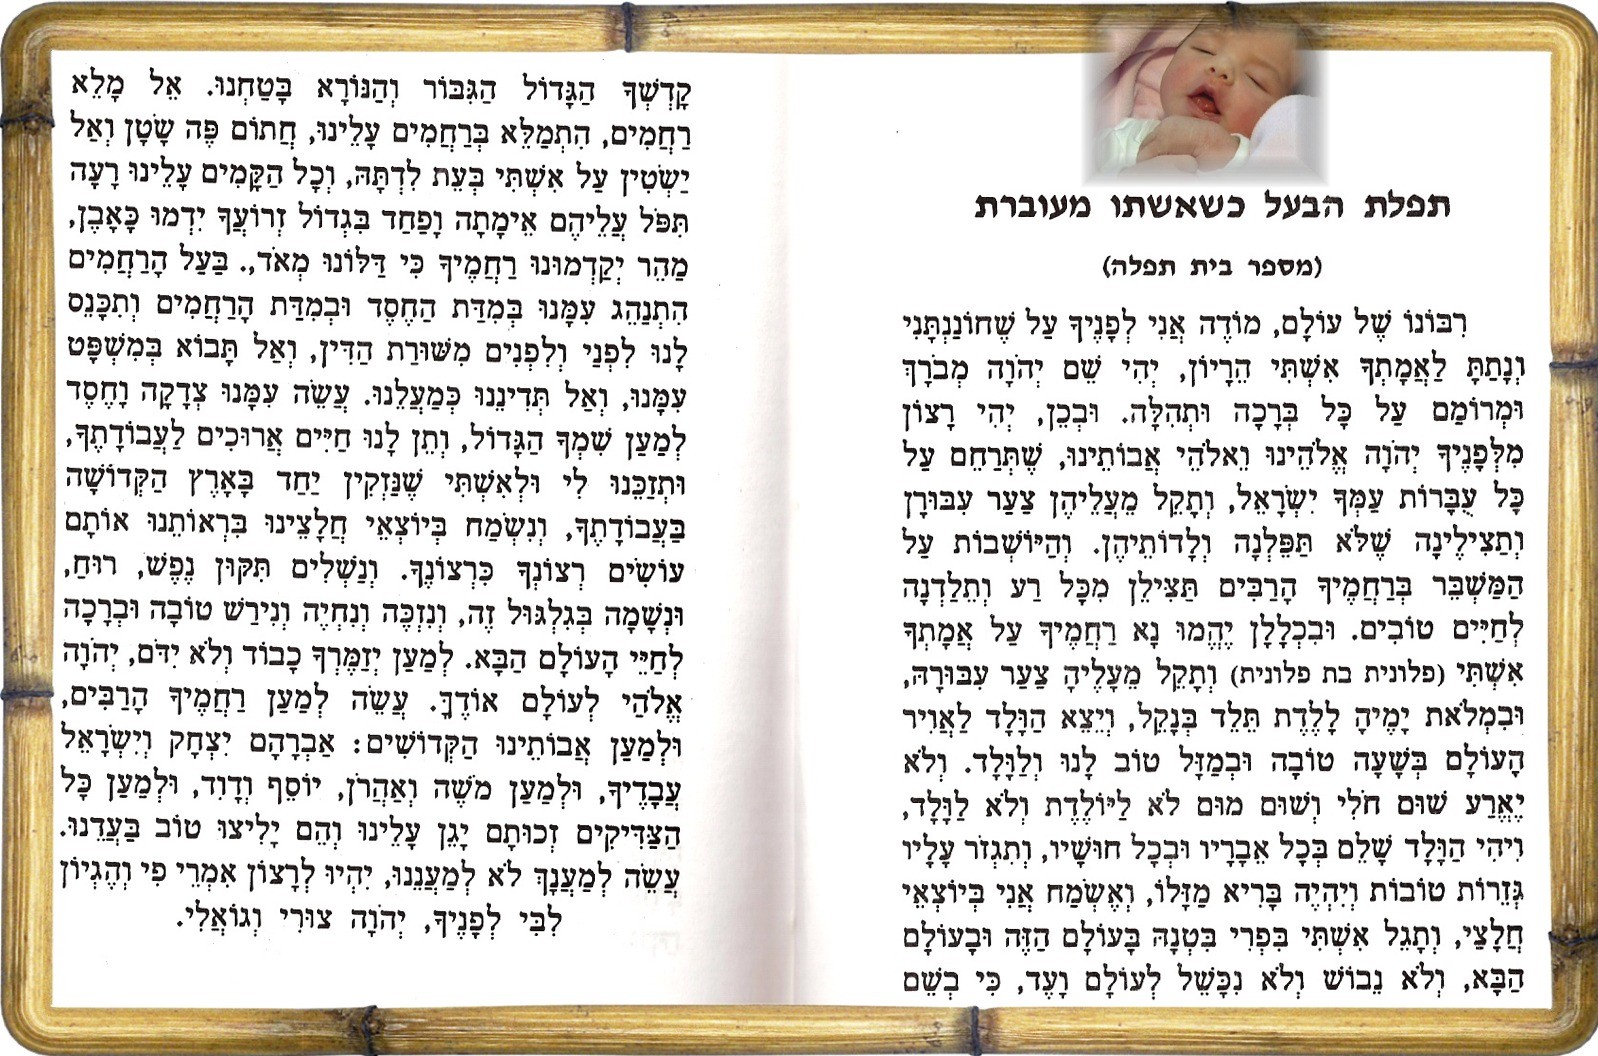 תפלת הבעל כשאשתו מעוברת
(מספר בית תפלה)
רִבּוֹנוֹ שֶׁל עוֹלָם, מוֹדֶה אֲנִי לְפָנֶיךָ עַל שֶׁחוֹנַנְתָּנִי
וְנָתַתָּ לַאֲמָתְךָ אִשְׁתִּי הֵרָיוֹן, יְהִי שֵׁם יְהֹוָה מְבֹרָךְ
וּמְרוֹמַם עַל כָּל בְּרָכָה וּתְהִלָּה. וּבְכֵן, יְהִי רָצוֹן
מִלְּפָנֶיךָ יְהֹוָה אֱלֹהֵינוּ וֵאלֹהֵי אֲבוֹתֵינוּ, שֶׁתְּרַחֵם עַל
כָּל עֻבָּרוֹת עַמְּךָ יִשְׂרָאֵל, וְתָקֵל מֵעֲלֵיהֶן צַעַר עִבּוּרָן
וְתַצִּילֵינָה שֶׁלֹּא תַּפֵּלְנָה וְלָדוֹתֵיהֶן. וְהַיּוֹשְׁבוֹת עַל
הַמַּשְׁבֵּר בְּרַחֲמֶיךָ הָרַבִּים תַּצִּילֵן מִכָּל רַע וְתֵלַדְנָה
לְחַיִּים טוֹבִים. וּבִכְלָלָן יֶהֱמוּ נָא רַחֲמֶיךָ עַל אֲמָתְךָ
אִשְׁתִּי (פלונית בת פלונית) וְתָקֵל מֵעָלֶיהָ צַעַר עִבּוּרָהּ,
וּבִמְלֹאת יָמֶיהָ לָלֶדֶת תֵּלֵד בְּנָקֵל, וְיֵצֵא הַוָּלָד לַאֲוִיר
הָעוֹלָם בְּשָׁעָה טוֹבָה וּבְמַזָּל טוֹב לָנוּ וְלַוָּלָד. וְלֹא
יֶאֱרַע שׁוּם חֹלִי וְשׁוּם מוּם לֹא לַיּוֹלֶדֶת וְלֹא לַוָּלָד,
וִיהִי הַוָּלָד שָׁלֵם בְּכָל אֵבָרָיו וּבְכָל חוּשָׁיו, וְתִגְזֹר עָלָיו
גְּזֵרוֹת טוֹבוֹת וְיִהְיֶה בָּרִיא מַזָּלוֹ, וְאֶשְׂמַח אֲנִי בְּיוֹצְאֵי
חֲלָצַי, וְתָגֵל אִשְׁתִּי בִּפְרִי בִּטְנָהּ בָּעוֹלָם הַזֶּה וּבָעוֹלָם
הַבָּא, וְלֹא נֵבוֹשׁ וְלֹא נִכָּשֵׁל לְעוֹלָם וָעֶד, כִּי בְשֵׁם
קָדְשְׁךָ הַגָּדוֹל הַגִּבּוֹר וְהַנּוֹרָא בָּטַחְנוּ. אֵל מָלֵא
רַחֲמִים, הִתְמַלֵּא בְּרַחֲמִים עָלֵינוּ, חֲתוֹם פֶּה שָׂטָן וְאַל
יַשְׂטִין עַל אִשְׁתִּי בְּעֵת לִדְתָּהּ, וְכָל הַקָּמִים עָלֵינוּ רָעָה
תִּפֹּל עֲלֵיהֶם אֵימָתָה וָפַחַד בִּגְדוֹל זְרוֹעֲךָ יִדְּמוּ כָּאָבֶן,
מַהֵר יְקַדְּמוּנוּ רַחֲמֶיךָ כִּי דַלּוֹנוּ מְאֹד,. בַּעַל הָרַחֲמִים
הִתְנַהֵג עִמָּנוּ בְּמִדַּת הַחֶסֶד וּבְמִדַּת הָרַחֲמִים וְתִכָּנֵס
לָנוּ לִפְנַי וְלִפְנִים מִשּׁוּרַת הַדִּין, וְאַל תָּבוֹא בְּמִשְׁפָּט
עִמָּנוּ, וְאַל תְּדִינֵנוּ כְּמַעֲלֵנוּ. עֲשֵׂה עִמָּנוּ צְדָקָה וָחֶסֶד
לְמַעַן שִׁמְךָ הַגָּדוֹל, וְתֵן לָנוּ חַיִּים אֲרוּכִים לַעֲבוֹדָתֶךָ,
וּתְזַכֵּנוּ לִי וּלְאִשְׁתִּי שֶׁנַּזְקִין יַחַד בָּאָרֶץ הַקְּדוֹשָׁה
בַּעֲבוֹדָתֶךָ, וְנִשְׂמַח בְּיוֹצְאֵי חֲלָצֵינוּ בִּרְאוֹתֵנוּ אוֹתָם
עוֹשִׂים רְצוֹנְךָ כִּרְצוֹנֶךָ. וְנַשְׁלִים תִּקּוּן נֶפֶשׁ, רוּחַ,
וּנְשָׁמָה בְּגִלְגּוּל זֶה, וְנִזְכֶּה וְנִחְיֶה וְנִירַשׁ טוֹבָה וּבְרָכָה
לְחַיֵּי הָעוֹלָם הַבָּא. לְמַעַן יְזַמֶּרְךָ כָבוֹד וְלֹא יִדֹּם, יְהֹוָה
אֱלֹהַי לְעוֹלָם אוֹדֶךָּ. עֲשֵׂה לְמַעַן רַחֲמֶיךָ הָרַבִּים,
וּלְמַעַן אֲבוֹתֵינוּ הַקְּדוֹשִׁים: אַבְרָהָם יִצְחָק וְיִשְׂרָאֵל
עֲבָדֶיךָ, וּלְמַעַן מֹשֶׁה וְאַהֲרֹן, יוֹסֵף וְדָוִד, וּלְמַעַן כָּל
הַצַּדִּיקִים זְכוּתָם יָגֵן עָלֵינוּ וְהֵם יָלִיצוּ טוֹב בַּעֲדֵנוּ.
עֲשֵׂה לְמַעֲנָךְ לֹא לְמַעֲנֵנוּ, יִהְיוּ לְרָצוֹן אִמְרֵי פִי וְהֶגְיוֹן
לִבִּי לְפָנֶיךָ, יְהֹוָה צוּרִי וְגוֹאֲלִי.